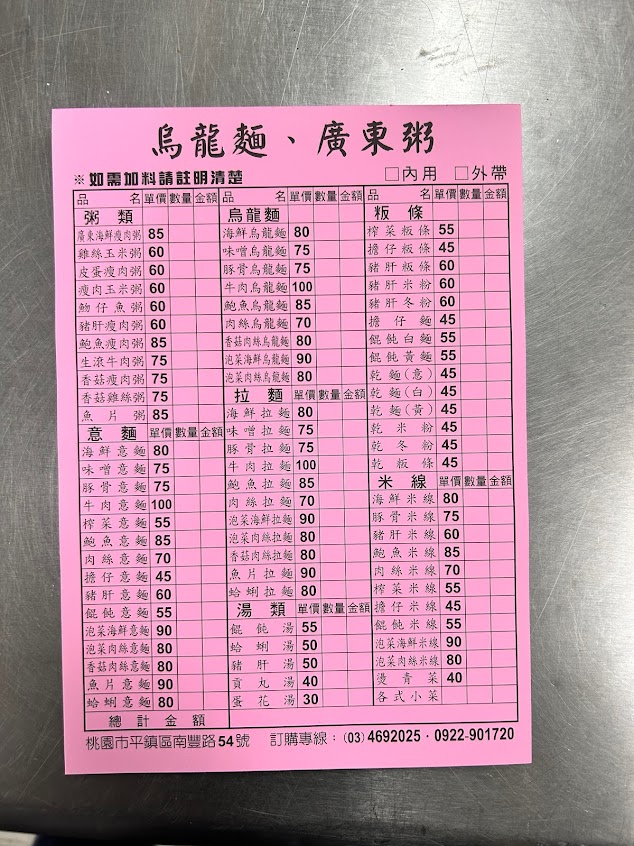 烏龍麵、廣東粥
※如需加料請註明清楚 □內用 □外帶
品 名 單價 數量 金額
粥 類
廣東海鮮瘦肉粥 85
雞絲玉米粥 60
皮蛋瘦肉粥 60
瘦肉玉米粥 60
魩仔魚粥 60
豬肝瘦肉粥 60
鮑魚瘦肉粥 85
生滾牛肉粥 75
香菇瘦肉粥 75
香菇雞絲粥 75
魚片粥 85
意 麵 單價 數量 金額
海鮮意麵 80
味噌意麵 75
豚骨意麵 75
牛肉意麵 100
榨菜意麵 55
鮑魚意麵 85
肉絲意麵 70
擔仔意麵 45
豬肝意麵 60
餛飩意麵 55
泡菜海鮮意麵 90
泡菜肉絲意麵 80
香菇肉絲意麵 80
魚片意麵 90
蛤蜊意麵 80
總計金額
品 名 單價 數量 金額
烏龍麵
海鮮烏龍麵 80
味噌烏龍麵 75
豚骨烏龍麵 75
牛肉烏龍麵 100
鮑魚烏龍麵 85
肉絲烏龍麵 70
香菇肉絲烏龍麵 80
泡菜海鮮烏龍麵 90
泡菜肉絲烏龍麵 80
拉 麵 單價 數量 金額
海鮮拉麵 80
味噌拉麵 75
豚骨拉麵 75
牛肉拉麵 100
鮑魚拉麵 85
肉絲拉麵 70
泡菜海鮮拉麵 90
泡菜肉絲拉麵 80
香菇肉絲拉麵 80
魚片拉麵 90
蛤蜊拉麵 80
湯 類 單價 數量 金額
餛飩湯 55
蛤蜊湯 50
豬肝湯 50
貢丸湯 40
蛋花湯 30
品 名 單價 數量 金額
粄 條
榨菜粄條 55
擔仔粄條 45
豬肝粄條 60
豬肝米粉 60
豬肝冬粉 60
擔仔麵 45
餛飩白麵 55
餛飩黃麵 55
乾麵(意) 45
乾麵(白) 45
乾麵(黃) 45
乾米粉 45
乾冬粉 45
乾粄條 45
米 線 單價 數量 金額
海鮮米線 80
豚骨米線 75
豬肝米線 60
鮑魚米線 85
肉絲米線 70
榨菜米線 55
擔仔米線 45
餛飩米線 55
泡菜海鮮米線 90
泡菜肉絲米線 80
燙青菜 40
各式小菜
桃園市平鎮區南豐路54號 訂購專線：(03)4692025．0922-901720